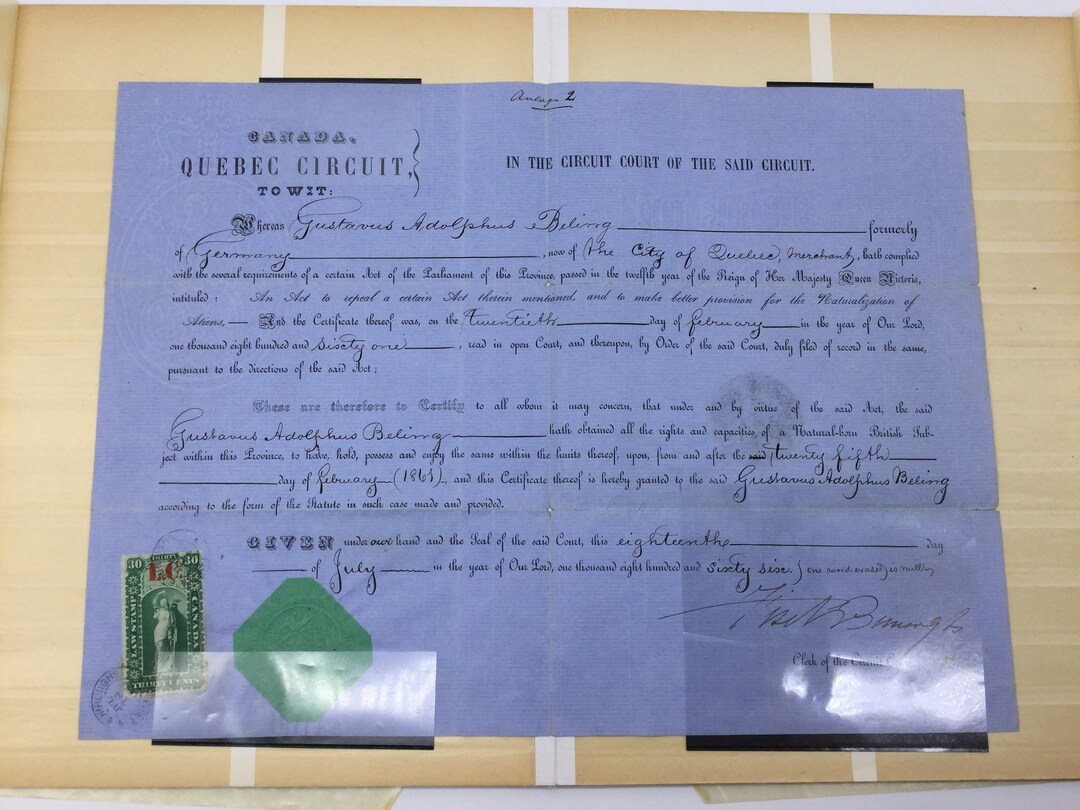 Anlage 2
CANADA,
QUEBEC CIRCUIT,
TO WIT:
IN THE CIRCUIT COURT OF THE SAID CIRCUIT.
Whereas Gustavus Adolphus Beling formerly
of Germany, now of the City of Quebec, Merchant, hath complied
with the several requirements of a certain Act of the Parliament of this Province, passed in the twelfth year of the Reign of Her Majesty Queen Victoria,
intituled: An Act to repeal a certain Act therein mentioned, and to make better provision for the Naturalization of
Aliens,— And the Certificate thereof was, on the twentieth day of february in the year of Our Lord,
one thousand eight hundred and sixty one, read in open Court, and thereupon, by Order of the said Court, duly filed of record in the same,
pursuant to the directions of the said Act;
These are therefore to Certify to all whom it may concern, that under and by virtue of the said Act, the said
Gustavus Adolphus Beling hath obtained all the rights and capacities of a Natural-born British Sub-
ject within this Province, to have, hold, possess and enjoy the same within the limits thereof, upon, from and after the said twenty fifth
day of february (1861), and this Certificate thereof is hereby granted to the said Gustavus Adolphus Beling
according to the form of the Statute in such case made and provided.
GIVEN under our hand and the Seal of the said Court, this eighteenth day
of July in the year of Our Lord, one thousand eight hundred and sixty six. (one word erased is null)
Burroughs
Clerk of the Circuit
30 THIRTY 30
L.C.
LAW STAMP
CANADA
THIRTY CENTS